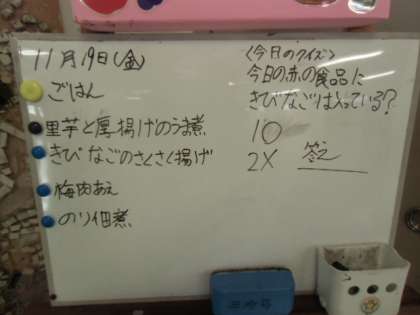 11月19日(金)
ごはん
里芋と厚揚げのうま煮
きびなごのさくさく揚げ
梅肉あえ
のり佃煮
〈今日のクイズ〉
今日の赤の食品に
きびなごは入っている?
1○
2× 答え